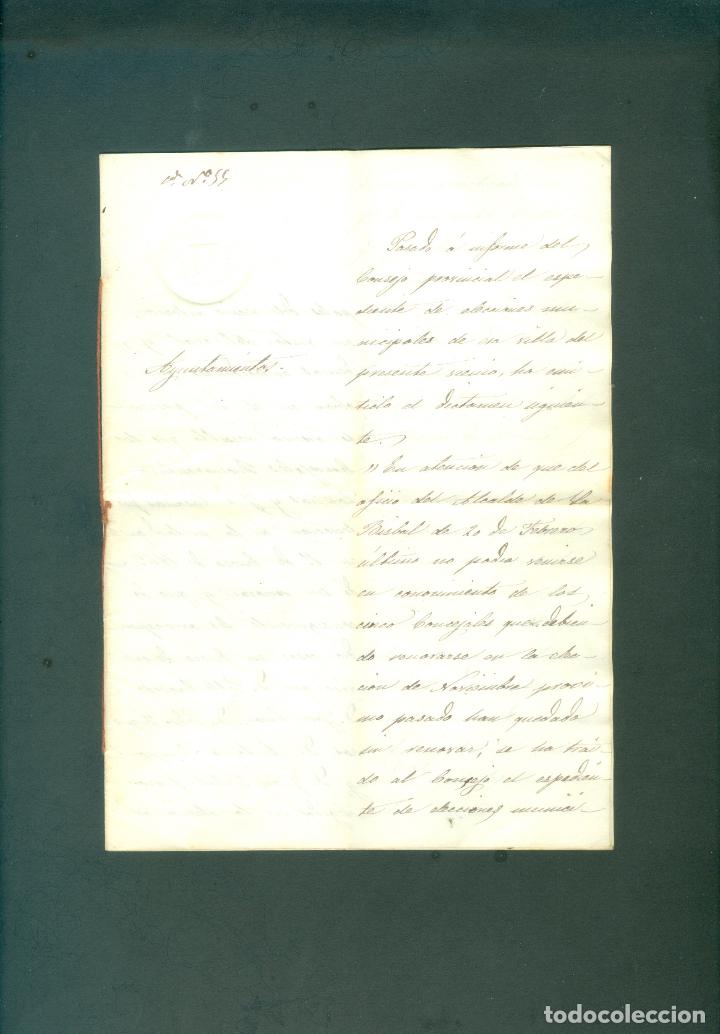 Nº 55
Ayuntamientos.
Pasado á informe del
Consejo provincial el espe-
diente de elecciones mu-
nicipales de esa villa del
presente vienio, ha emi-
tido el dictamen siguien-
te.
"En atencion de que del
oficio del Alcalde de La
Bisbal de 20 de Febrero
último no podia venirse
en conocimiento de los
cinco Concejales que debien-
do renovarse en la elec-
cion de Noviembre procsi-
mo pasado han quedado
sin renovar; se ha traí-
do al Consejo el espedien-
te de elecciones munici-
todocoleccion